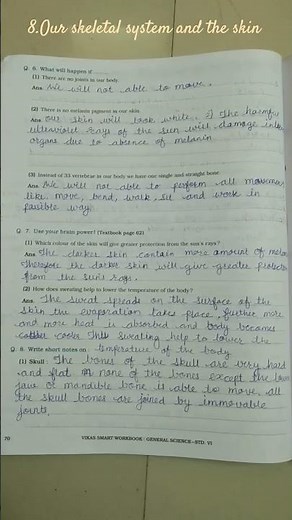 8.Our skeletal system and the skin
Q. 6. What will happen if ......
(1) There are no joints in our body.
Ans. We will not able to move.
(2) There is no melanin pigment in our skin.
Ans. Our skin will look white. 2) The harmful
ultraviolet rays of the sun will damage
organs due to absence of melanin.
(3) Instead of 33 vertebrae in our body we have one single and straight bone.
Ans. We will not able to perform all movement
like move, bend, walk sit and work in
way.
Q. 7. Use your brain power! (Textbook page 62)
(1) Which colour of the skin will give greater protection from the sun's rays?
Ans. The darker skin contain more amount of
therefore the darker skin will give greater protection
from the sun's rays.
(2) How does sweating help to lower the temperature of the body?
Ans. The sweat spreads on the surface of the
skin the evaporation takes place, further more
and more heat is absorbed and body becomes
cooler. This sweating help to lower the
temperature of the body
Q. 8. Write short notes on
(1) Skull: The bones of the skull are very hard
and flat. None of the bones except the
jaw or mandible bone is able to move. all
the skull bones are joined by immovable
joints.
70
VIKAS SMART WORKBOOK : GENERAL SCIENCE - STD. VI